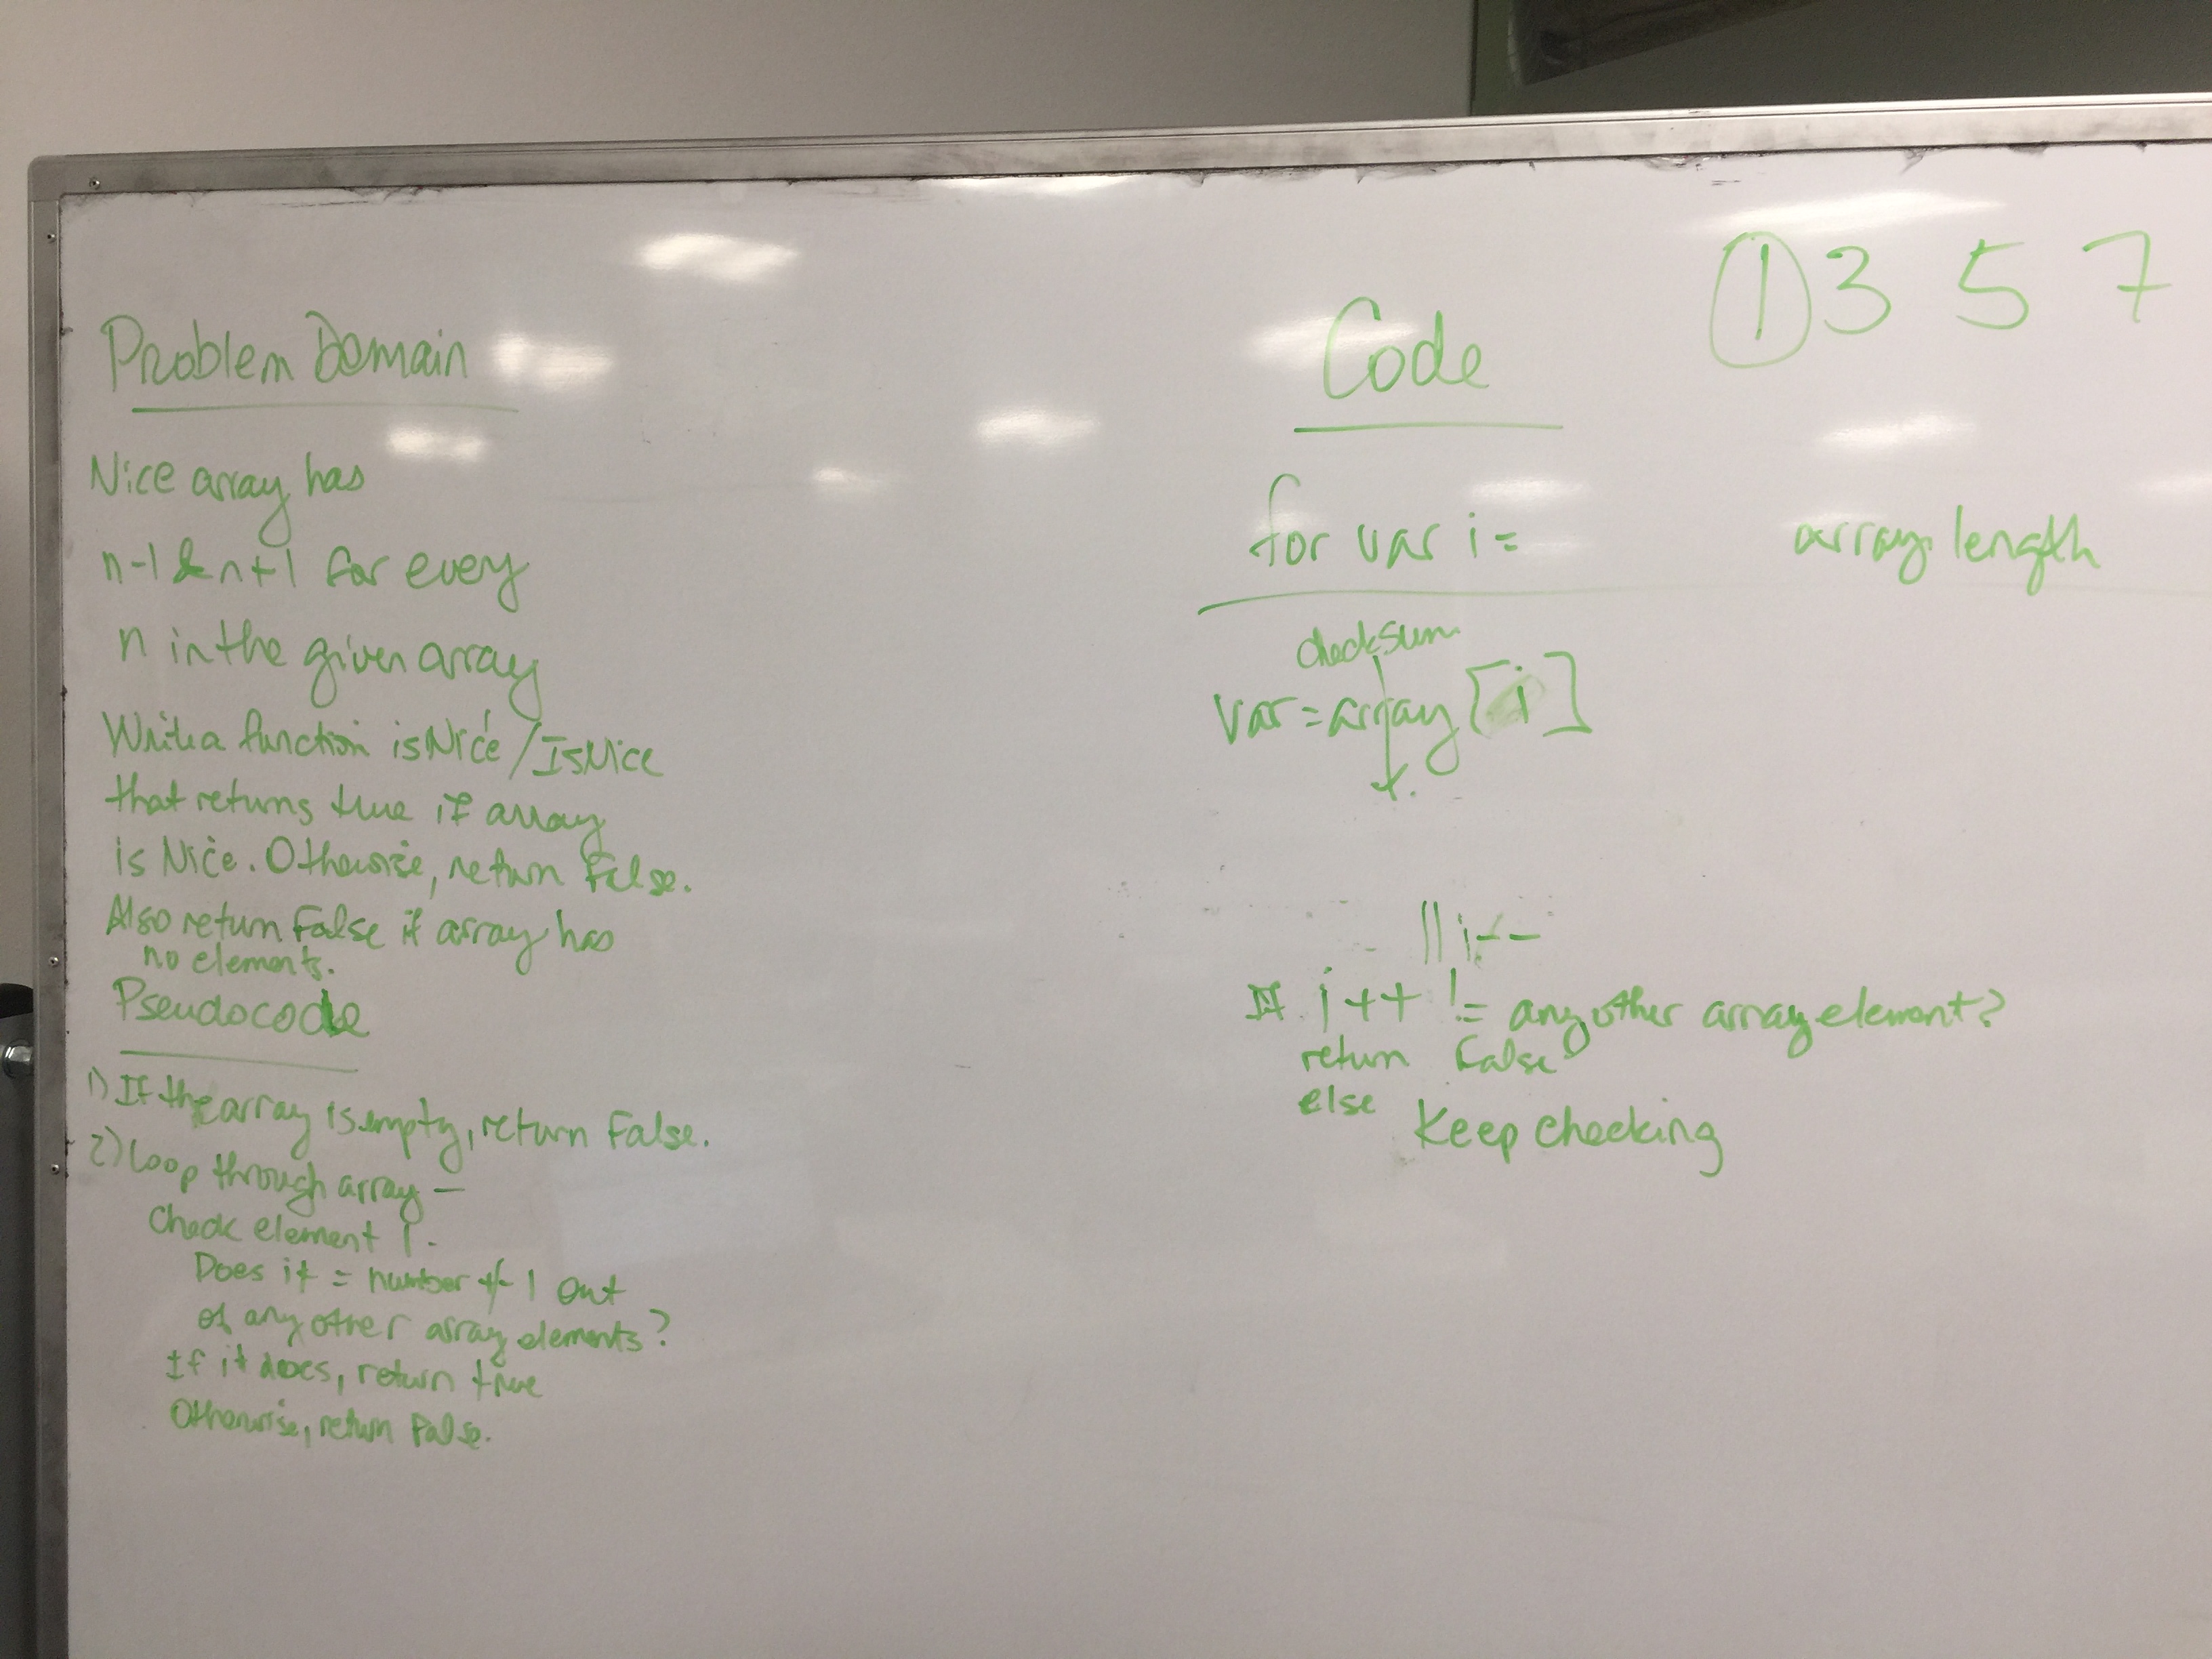 Problem Domain
Nice array has
n-1 & n+1 for every
n in the given array
Write a function isNice/IsNice
that returns true if array
is Nice. Otherwise, return False.
Also return False if array has
no elements.
Pseudocode
1) If the array is empty, return False.
2) Loop through array —
Check element 1.
Does it = number +/- 1 out
of any other array elements?
If it does, return true
Otherwise, return False.
1 3 5 7
Code
for var i = array length
checksum
var = array [i]
|| i--
If i++ != any other array element?
return False
else
Keep checking